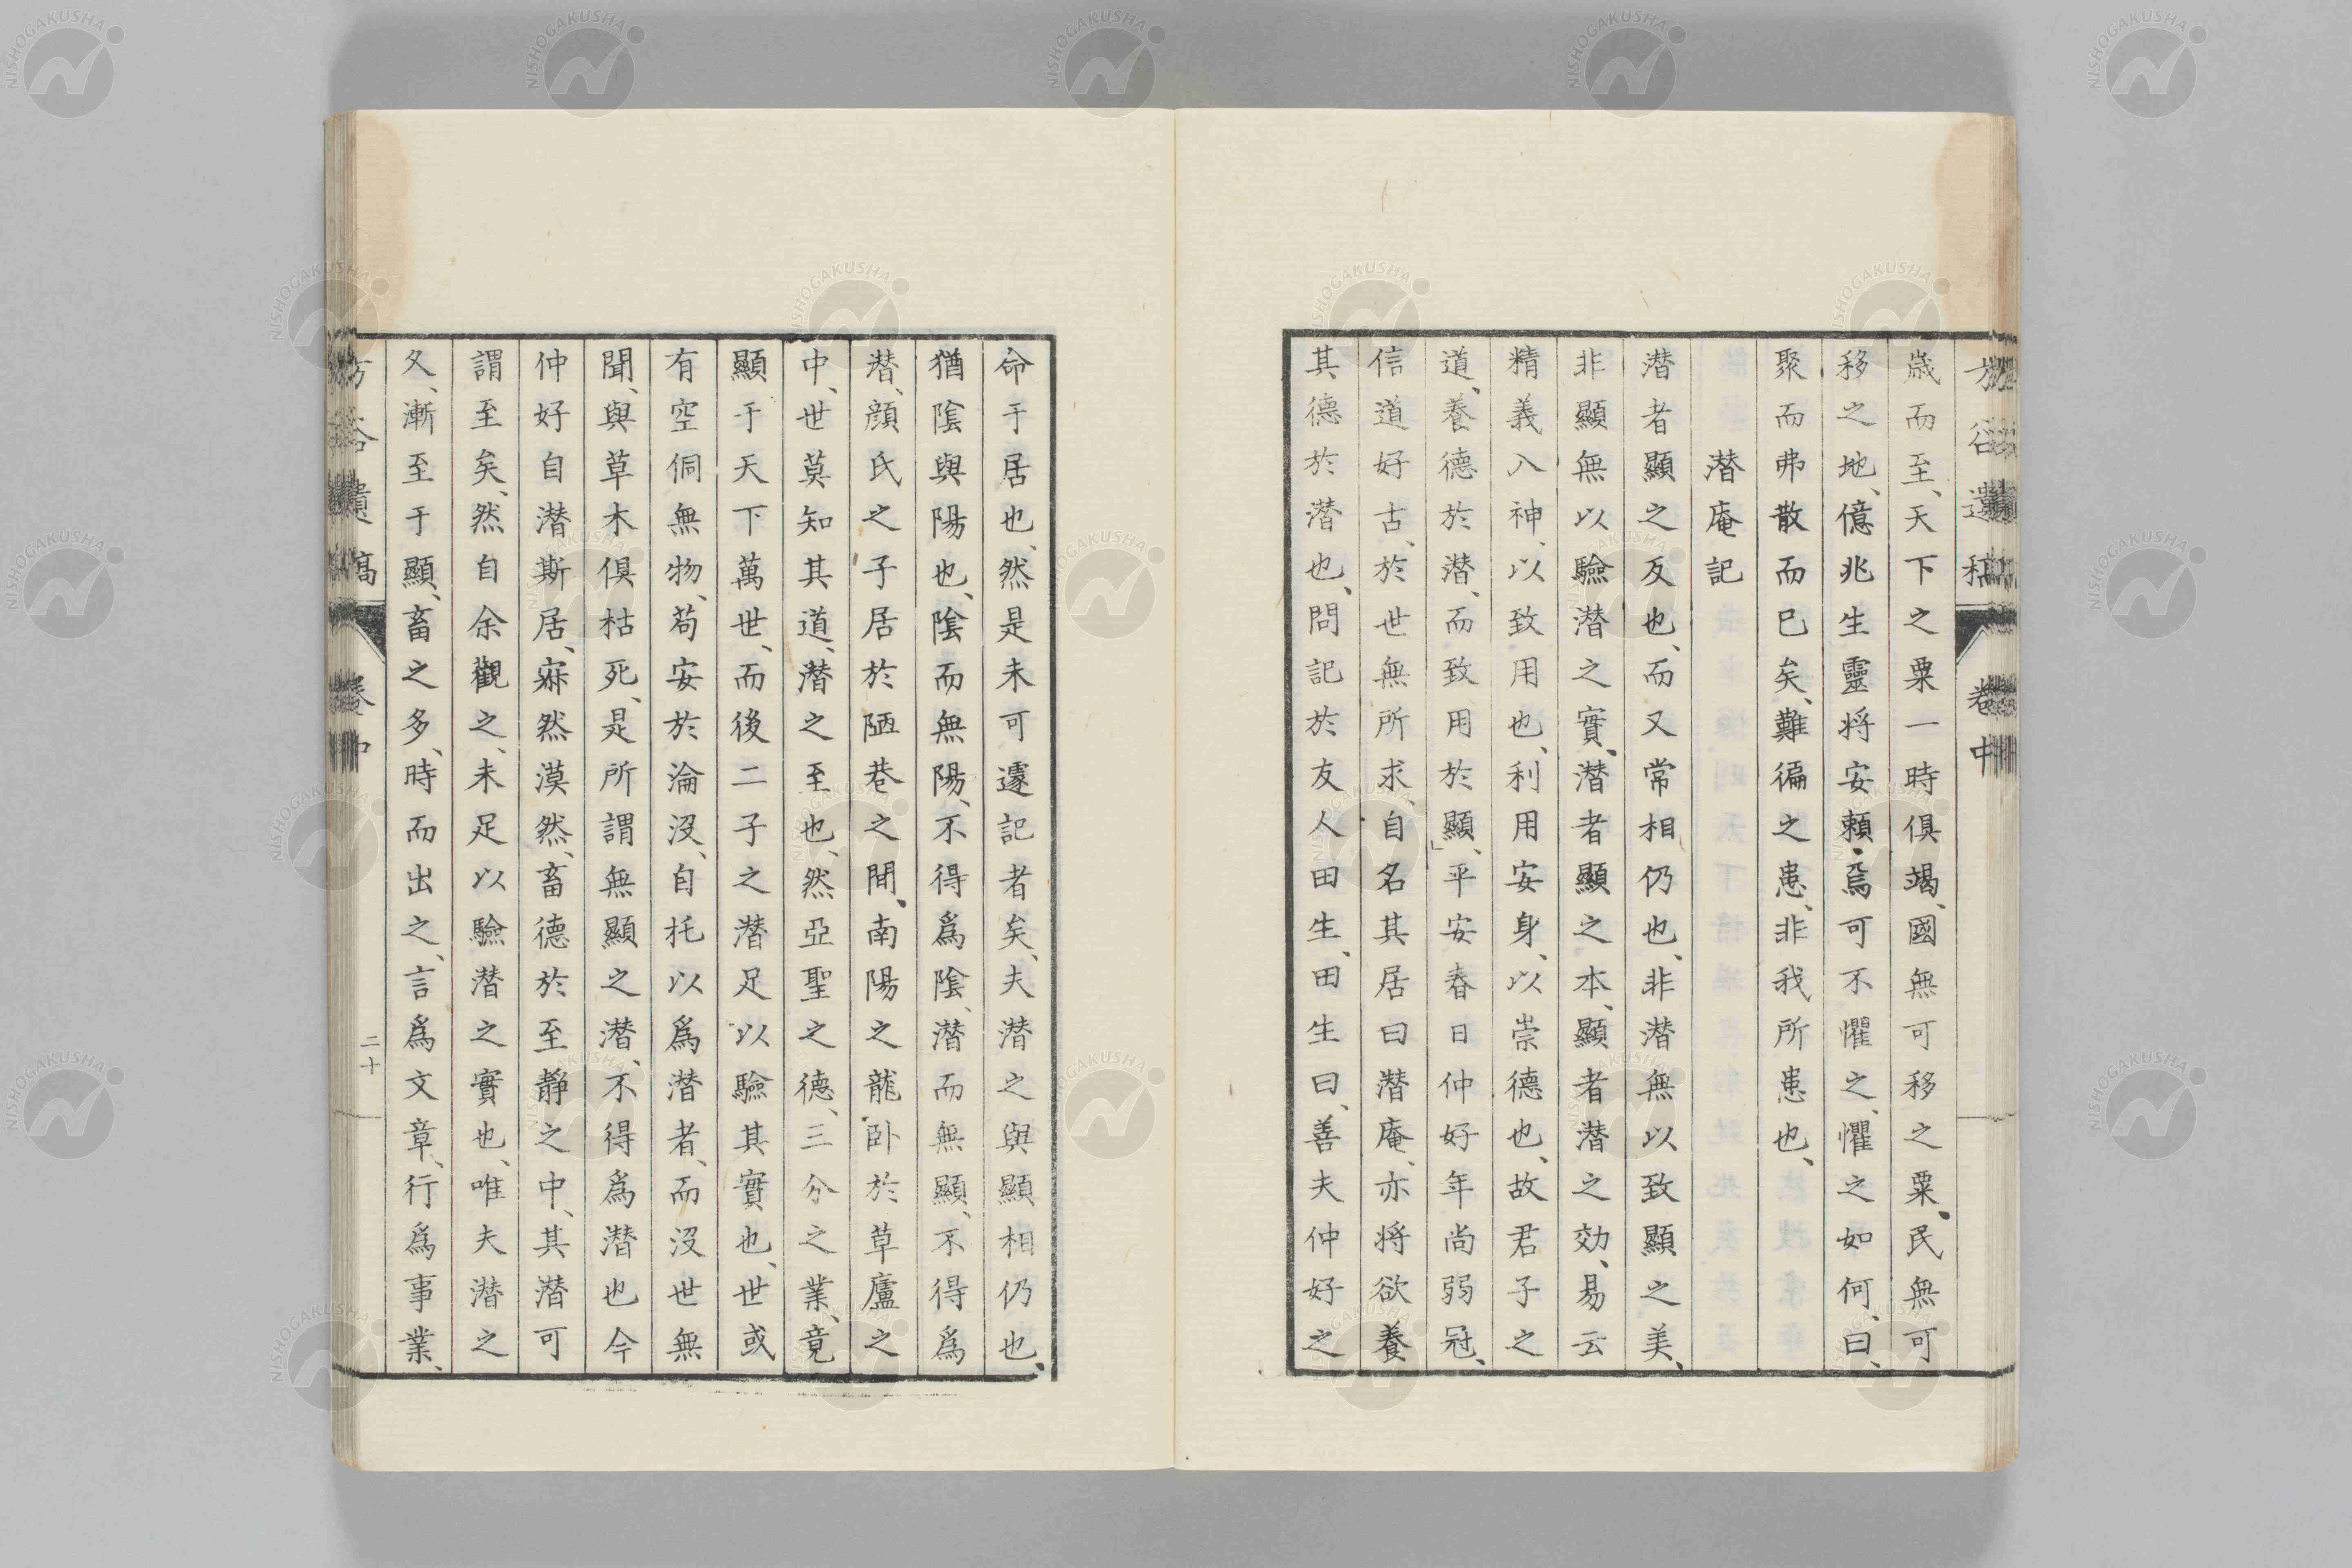 方谷遺稿 卷中
歳而至、天下之粟一時俱竭、國無可移之粟、民無可
移之地、億兆生靈将安頼焉、可不懼之、懼之如何、曰、
聚而弗散而已矣、難徧之患、非我所患也、
潜庵記
潜者顯之反也、而又常相仍也、非潜無以致顯之美、
非顯無以驗潜之實、潜者顯之本、顯者潜之効、易云
精義入神、以致用也、利用安身、以崇德也、故君子之
道、養德於潜、而致用於顯、平安春日仲好年尚弱冠、
信道好古、於世無所求、自名其居曰潜庵、亦将欲養
其德於潜也、問記於友人田生、田生曰、善夫仲好之
命于居也、然是未可遽記者矣、夫潜之與顯相仍也、
猶陰與陽也、陰而無陽、不得爲陰、潜而無顯、不得爲
潜、顔氏之子居於陋巷之間、南陽之龍卧於草廬之
中、世莫知其道、潜之至也、然亞聖之德、三分之業、竟
顯于天下萬世、而後二子之潜足以驗其實也、世或
有空侗無物、苟安於淪没、自托以爲潜者、而没世無
聞、與草木俱枯死、是所謂無顯之潜、不得爲潜也今
仲好自潜斯居、寂然漠然、畜德於至静之中、其潜可
謂至矣、然自余觀之、未足以驗潜之實也、唯夫潜之
久、漸至于顯、畜之多、時而出之、言爲文章、行爲事業、
方谷遺稿 卷中 二十
NISHOGAKUSHA